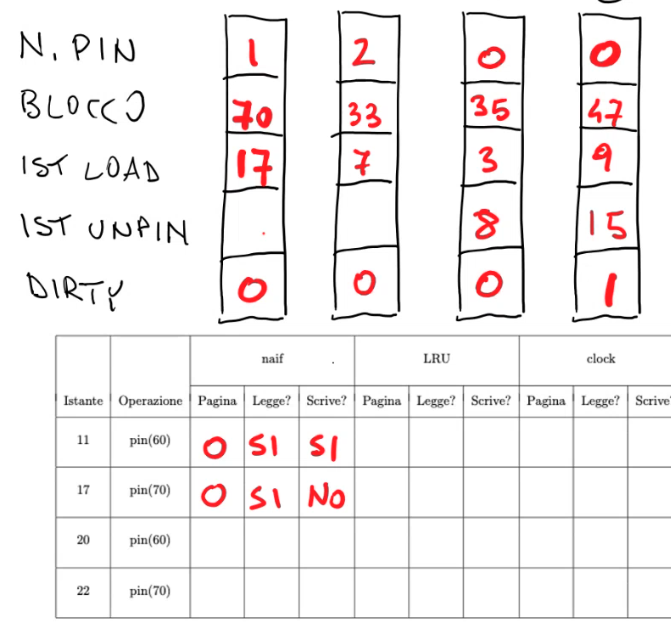 N. PIN 1 2 0 0
BLOCCO 70 33 35 47
IST LOAD 17 7 3 9
IST UNPIN 8 15
DIRTY 0 0 0 1
naif LRU clock
Istante Operazione Pagina Legge? Scrive? Pagina Legge? Scrive? Pagina Legge? Scrive?
11 pin(60) 0 SI SI
17 pin(70) 0 SI NO
20 pin(60)
22 pin(70)